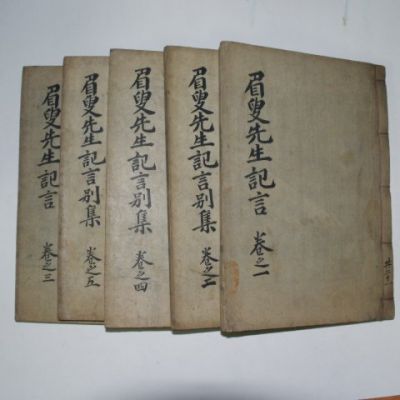 眉叟先生記言 卷之一
眉叟先生記言別集 卷之二
眉叟先生記言別集 卷之四
眉叟先生記言別集 卷之五
眉叟先生記言 卷之三